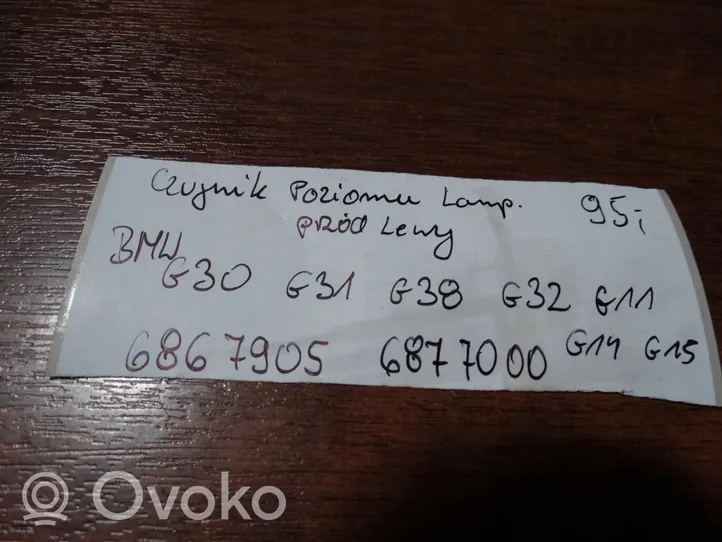 Czujnik Poziomu Lamp. 95,-
przód Lewy
BMW
G30 G31 G38 G32 G11
6867905 6877000 G14 G15
Ovoko